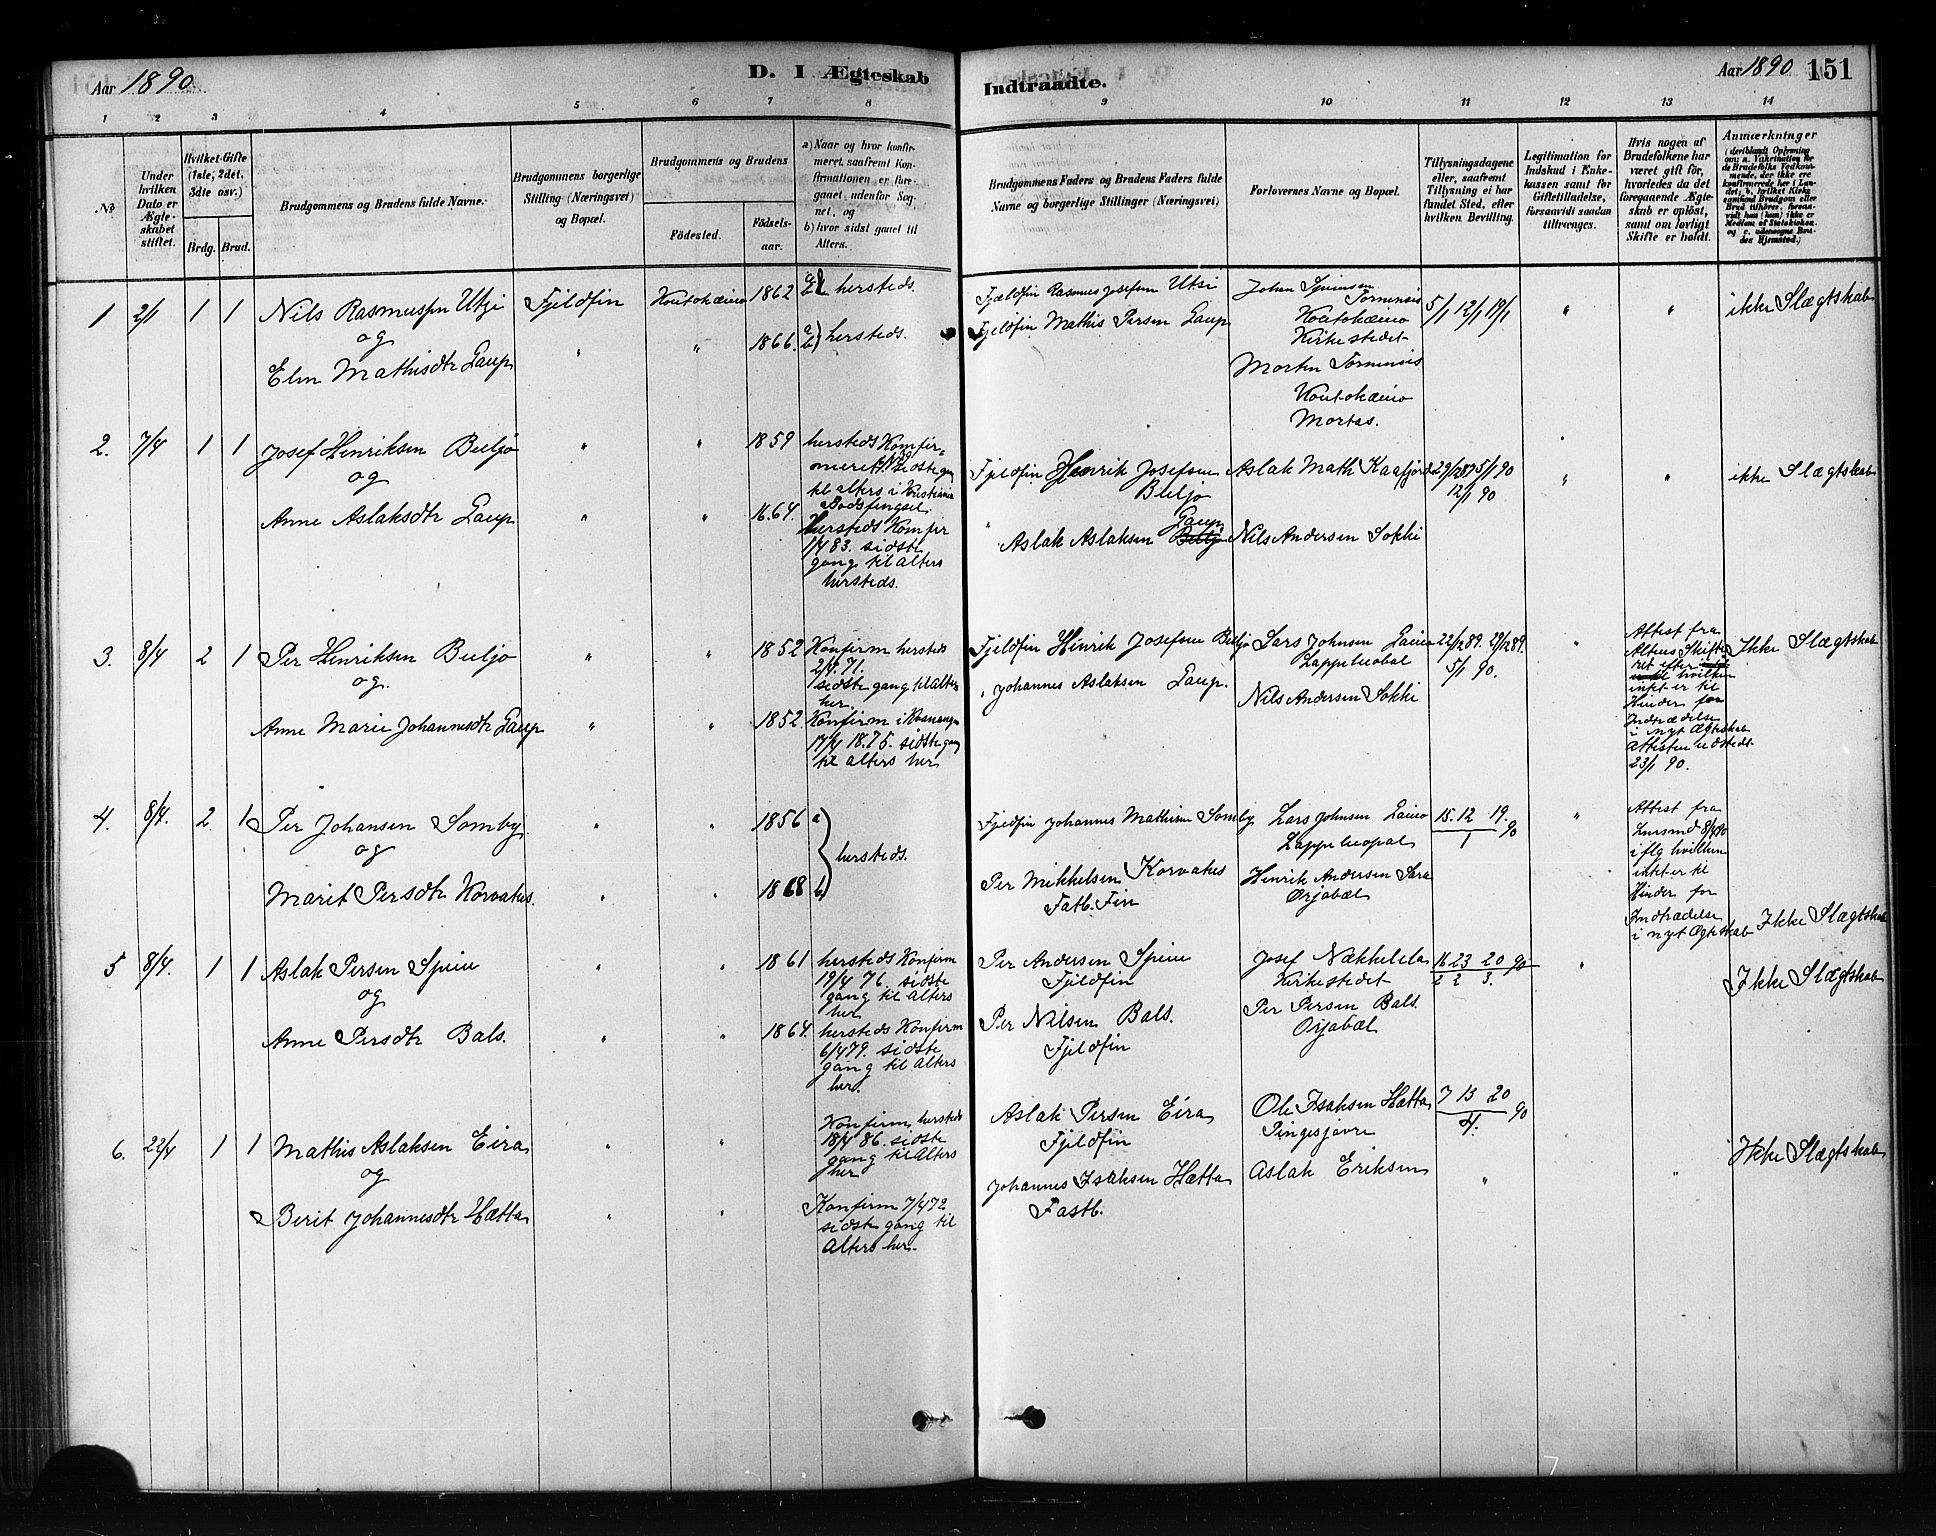 Aar 1890.
D. 1 Ægteskab
Indtraadte.
Aar 1890 151
1 2 3 4 5 6 7 8 9 10 11 12 13 14
No
Under
hvilken
Dato er
Ægte-
skabet
stiftet.
Hvilket Gifte
(1ste, 2det,
3die osv.)
Brdg. Brud.
Brudgommens og Brudens fulde Navne.
Brudgommens borgerlige
Stilling (Næringsvei)
og Bopæl.
Brudgommens og Brudens
Födested.
Födsels-
aar.
a) Naar og hvor konfir-
meret, saafremt Kon-
firmationen er fore-
gaaet udenfor Sog-
net, og
b) hvor sidst gaaet til
Alters.
Brudgommens Faders og Brudens Faders fulde
Navne og borgerlige Stillinger (Næringsvei)
Forlovernes Navne og Bopæl.
Tillysningsdagene
eller, saafremt
Tillysning ei har
fundet Sted, efter
hvilken Bevilling.
Legitimation for
Indskud i Enke-
kassen samt for
Giftetilladelse,
forsaavidt saadan
tiltrænges.
Hvis nogen af
Brudefolkene har
været gift för,
hvorledes da det
foregaaende Ægte-
skab er oplöst,
samt om lovligt
Skifte er holdt.
Anmærkninger
(deriblandt Oplysning
om: a. Vakcination for
de Brudefolks Vedkom-
mende, der ikke ere
konfirmerede her i Lan-
det; b. hvilket Kirke-
samfund Brudgom eller
Brud tilhörer, forsaa-
vidt han (hun) ikke er
Medlem af Statskirken,
og c. udensogns Bru-
des Hjemsted.)
1 2/1 1 1 Nils Rasmussen Utsi Fjeldfin Koutokæino 1862 hersteds.
og
Elen Mathisdtr Gaup " " 1866. hersteds.
Fjeldfin Rasmus Josefsen Utsi
Fjeldfin Mathis Persen Gaup
Johan
Tornensis
Koutokæino
Kirkestedet
Morten Tornensis
Koutokæino
Mortas.
5/1 12/1 19/1 " " ikke Slægtskab
2. 7/4 1 1 Josef Henriksen Buljo " " 1859 hersteds Konfir-
og
meret sidste gang
til alters i Kristiania
Bodsfængsel.
Anne Aslaksdtr Gaup " " 1864. Hersteds Konfir
1/4 83. sidste
gang til alters
hersteds.
Fjeldfin Henrik Josefsen
Buljo
" Aslak Aslaksen Gaup
Aslak Math Kaafjord
Nils Andersen Sokki
29/12 89 5/1 90
12/1 90
" " ikke Slægtskab
3. 8/4 2 1 Per Henriksen Buljo " " 1852 Konfirm hersteds
og.
2/4 71.
sidste gang til Alters
her.
Anne Marie Johannesdtr Gaup " " 1852. Konfirm i Kvænangen
17/4 1875. sidste gang
til alters her
Fjeldfin Henrik Josefsen Buljo
" Johannes Aslaksen Gaup.
Lars Johnsen Gaino
Lappeluobal
Nils Andersen Sokki
22/12 89. 29/12 89.
5/1 90.
"
Attest fra
Altens Skifte-
ret efter
hvilken
intet er til
Hinder for
Indtrædelse
i nyt Ægteskab
attesten udstedt
23/1 90.
Ikke Slægtskab
4. 8/4. 2. 1 Per Johansen Somby. " " 1856 a
og
hersteds.
Marit Persdtr Korvatus. " " 1868 b
Fjeldfin Johannes Mathisen Somby
Per Mikkelsen Korvatus
Fastb. Fin
Lars Johnsen Gaino
Lappeluopal
Henrik Andersen Sara
Orjabæl
15. 12 19.
1 90
"
Attest fra
Lensmd 8/4 90
iflg hvilken
intet er til
Hinder for
Indtrædelse
i nyt Ægteskab
Ikke Slægtskab
5 8/4. 1 1 Aslak Persen Spein " " 1861 hersteds Konfirm
og
19/4 76. sidste
gang til Alters
her
Anne Persdtr Bals. " " 1864. hersteds Konfirm
6/4 79. sidste
gang til Alters
her.
Per Andersen Spein
Fjeldfin
Per Nilsen Bals.
Fjeldfin
Josef Nækkelela
Kirkestedet
Per Persen Bals.
Orjabæl
16 23 20 90
2 2 3.
"
Ikke Slægtskab
6. 22/4 1 1 Mathis Aslaksen Eira " "
og
Konfirm, hersteds
18/4 86. sidste
gang til Alters
her
Berit Johannesdtr Hætta " "
Konfirm 7/4 72
sidste gang til
Alters her.
Aslak Persen Eira
Fjeldfin
Johannes Isaksen Hætta
Fastb.
Ole Isaksen Hætta
Pingesjavre
Aslak Eriksen
7 13 20
4. 90
" "
Ikke Slægtskab